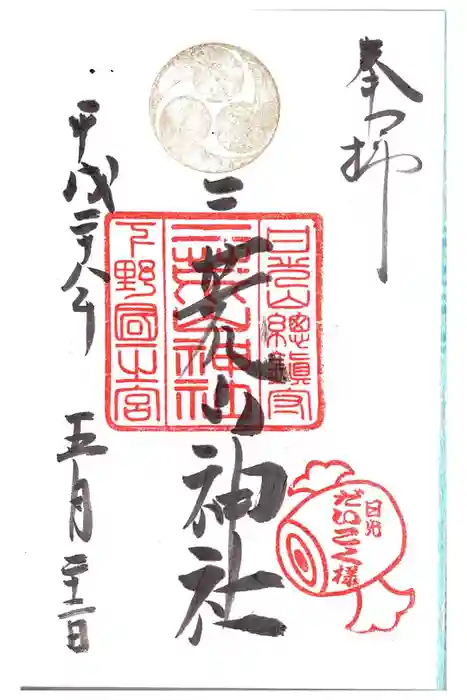 奉拝
二荒山神社
平成二十八年 五月二十二日
日光山總鎮守
二荒山神社
下野國一之宮
日光
だいこく様